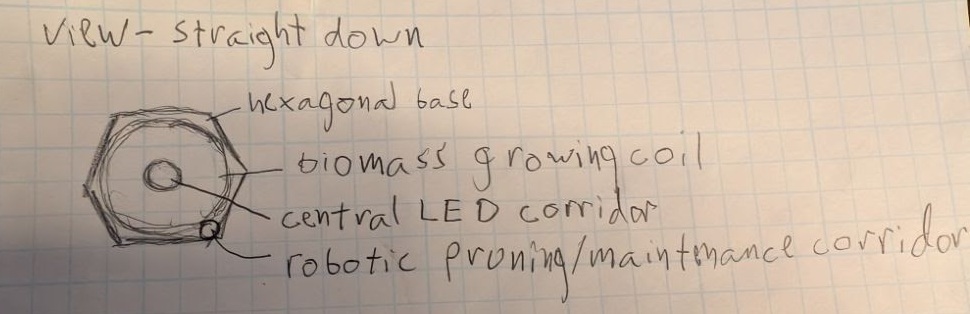 view- straight down
hexagonal base
biomass growing coil
central LED corridor
robotic pruning/maintmance corridor